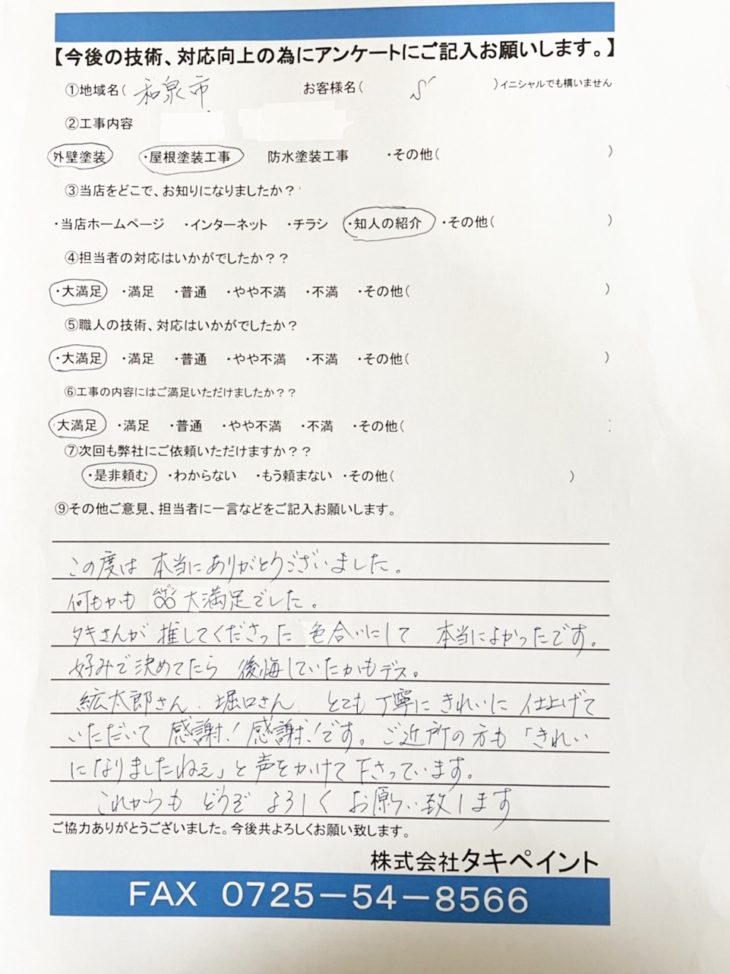 【今後の技術、対応向上の為にアンケートにご記入お願いします。】
①地域名( 和泉市 お客様名( S )イニシャルでも構いません
②工事内容
外壁塗装 ・屋根塗装工事 防水塗装工事 ・その他( )
③当店をどこで、お知りになりましたか?
・当店ホームページ ・インターネット ・チラシ ・知人の紹介 ・その他( )
④担当者の対応はいかがでしたか??
・大満足 ・満足 ・普通 ・やや不満 ・不満 ・その他( )
⑤職人の技術、対応はいかがでしたか?
・大満足 ・満足 ・普通 ・やや不満 ・不満 ・その他( )
⑥工事の内容にはご満足いただけましたか??
大満足 ・満足 ・普通 ・やや不満 ・不満 ・その他(
⑦次回も弊社にご依頼いただけますか??
・是非頼む ・わからない ・もう頼まない ・その他( )
⑨その他ご意見、担当者に一言などをご記入お願いします。
この度は 本当にありがとうございました。
何もかも 大満足でした。
タキさんが 推してくださった 色合いにして 本当によかったです。
好みで決めてたら 後悔していたかもデス。
紘太郎さん、堀口さん、とても丁寧にきれいに仕上げて
いただいて 感謝!感謝!です。ご近所の方も「きれい
になりましたねぇ」と声をかけて下さっています。
これからも どうぞ よろしく お願い致します
ご協力ありがとうございました。今後共よろしくお願い致します。
株式会社タキペイント
FAX 0725－54－8566